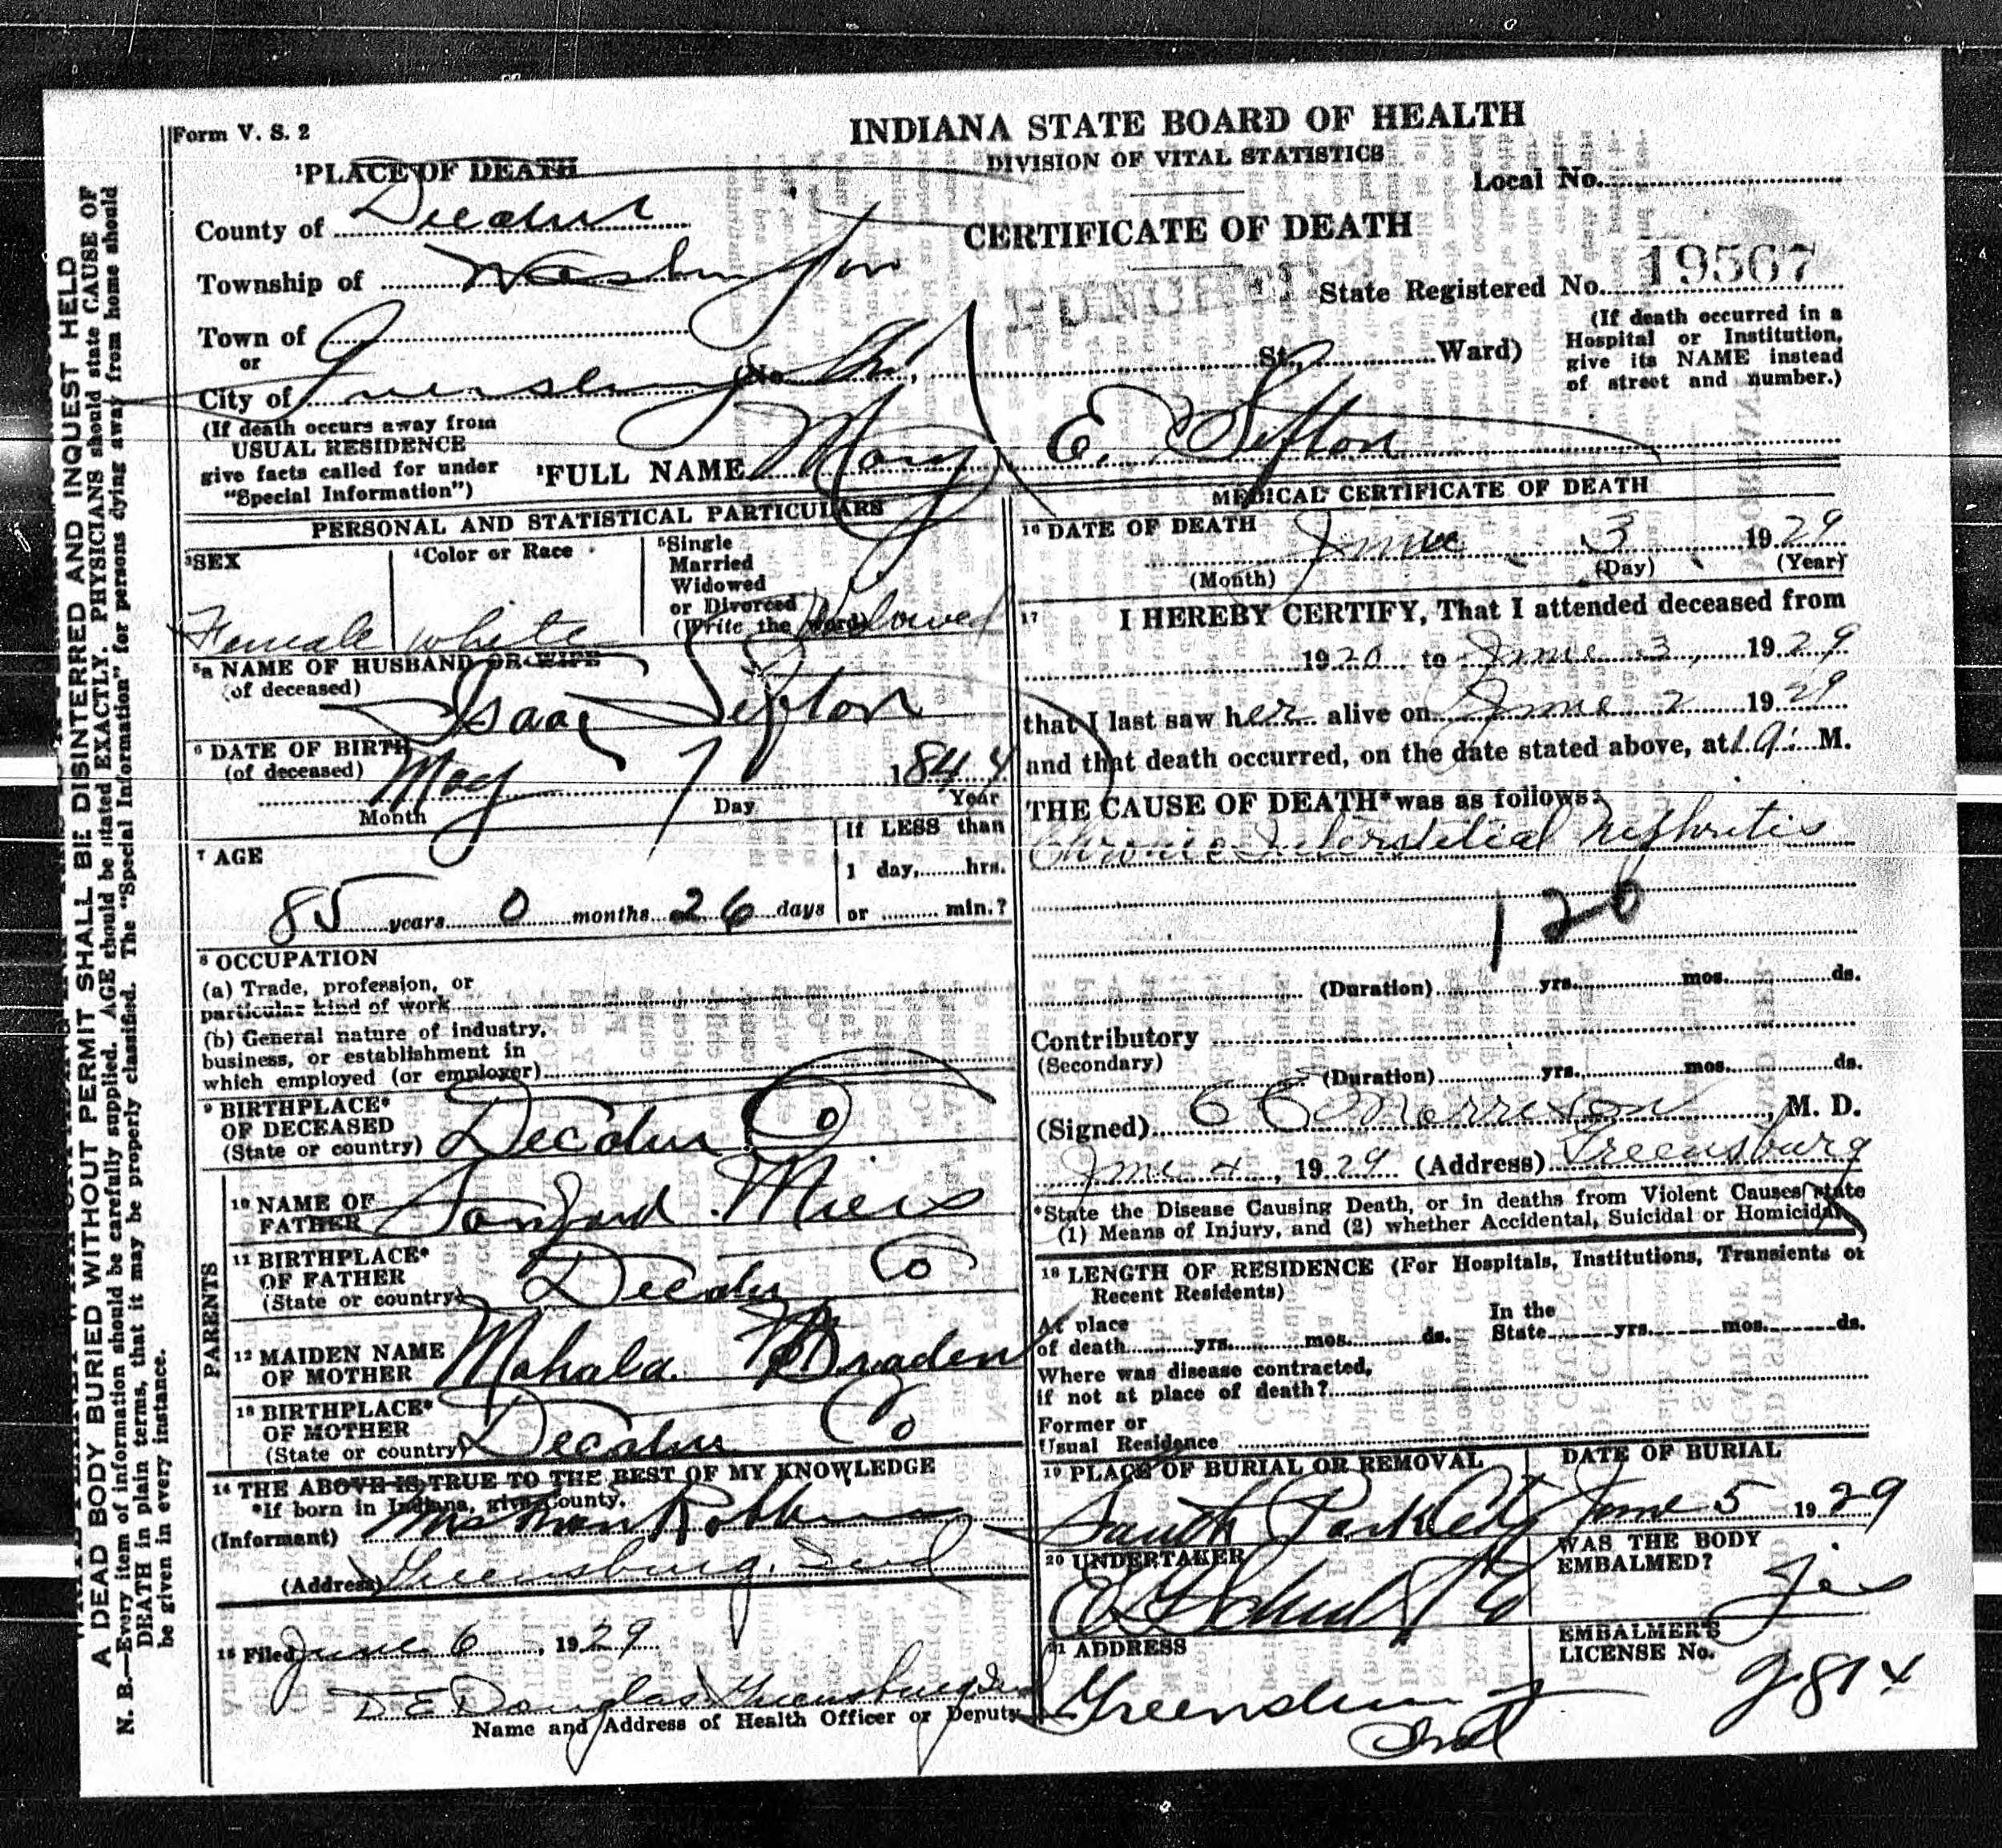 Form V. S. 2
INDIANA STATE BOARD OF HEALTH
DIVISION OF VITAL STATISTICS
CERTIFICATE OF DEATH
Local No.
State Registered No. 19567
(If death occurred in a
Hospital or Institution,
give its NAME instead
of street and number.)
1 PLACE OF DEATH
County of Decatur
Township of Washington
Town of
or
City of Greensburg No. St., Ward)
(If death occurs away from
USUAL RESIDENCE
give facts called for under
"Special Information")
2 FULL NAME Mary E. Sefton
PERSONAL AND STATISTICAL PARTICULARS
3 SEX
Female
4 Color or Race
white
5 Single
Married
Widowed
or Divorced
(Write the word) Widowed
5a NAME OF HUSBAND OR WIFE
(of deceased)
Isaac Sefton
6 DATE OF BIRTH
(of deceased)
May 7 1844
Month Day Year
7 AGE
85 years 0 months 26 days
If LESS than
1 day, hrs.
or min.?
8 OCCUPATION
(a) Trade, profession, or
particular kind of work
(b) General nature of industry,
business, or establishment in
which employed (or employer)
9 BIRTHPLACE*
OF DECEASED
(State or country) Decatur Co
PARENTS
10 NAME OF
FATHER Sanford Miers
11 BIRTHPLACE*
OF FATHER
(State or country) Decatur Co
12 MAIDEN NAME
OF MOTHER Mahala Braden
13 BIRTHPLACE*
OF MOTHER
(State or country) Decatur Co
14 THE ABOVE IS TRUE TO THE BEST OF MY KNOWLEDGE
*If born in Indiana, give County.
(Informant) Robbins
(Address) Greensburg, Ind
15 Filed June 6, 1929
D E Douglas Greensburg Ind
Name and Address of Health Officer or Deputy
MEDICAL CERTIFICATE OF DEATH
16 DATE OF DEATH June 3 1929
(Month) (Day) (Year)
17 I HEREBY CERTIFY, That I attended deceased from
1920 to June 3, 1929
that I last saw her alive on June 2 1929
and that death occurred, on the date stated above, at M.
THE CAUSE OF DEATH* was as follows:
Chronic Interstitial Nephritis
120
(Duration) yrs. mos. ds.
Contributory
(Secondary)
(Duration) yrs. mos. ds.
(Signed) Morrison, M. D.
June 4, 1929 (Address) Greensburg
*State the Disease Causing Death, or in deaths from Violent Causes state
(1) Means of Injury, and (2) whether Accidental, Suicidal or Homicidal
18 LENGTH OF RESIDENCE (For Hospitals, Institutions, Transients or
Recent Residents)
At place
of death yrs. mos. ds.
In the
State yrs. mos. ds.
Where was disease contracted,
if not at place of death?
Former or
Usual Residence
19 PLACE OF BURIAL OR REMOVAL
South Park Cety
DATE OF BURIAL
June 5 1929
20 UNDERTAKER
WAS THE BODY
EMBALMED?
Yes
21 ADDRESS
Greensburg
Ind
EMBALMER'S
LICENSE No.
A DEAD BODY BURIED WITHOUT PERMIT SHALL BE DISINTERRED AND INQUEST HELD
N. B.—Every item of information should be carefully supplied. AGE should be stated EXACTLY. PHYSICIANS should state CAUSE OF
DEATH in plain terms, that it may be properly classified. The "Special Information" for persons dying away from home should
be given in every instance.